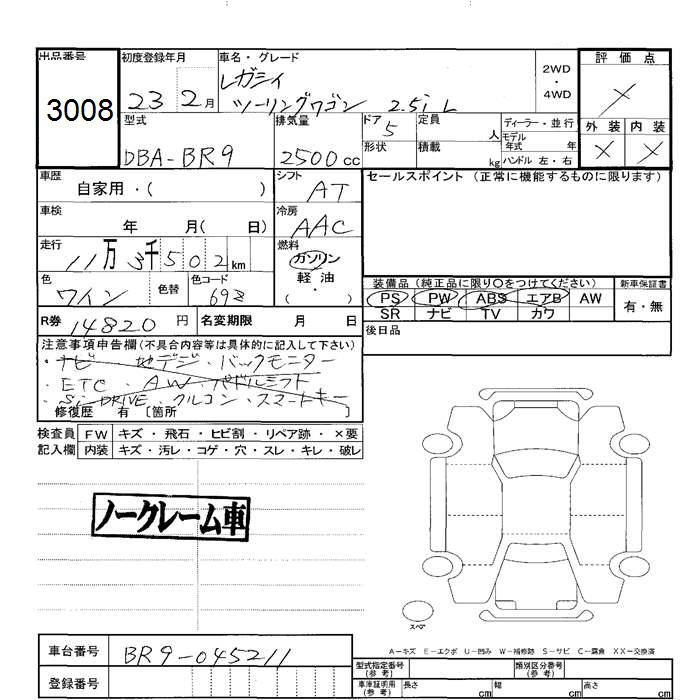 出品番号 初度登録年月 車名・グレード 評価点
3008 23 2月 レガシィ 2WD・4WD
ツーリングワゴン 2.5i L
型式 排気量 ドア 5 定員 人 ディーラー・並行 外装 内装
モデル年式 年
DBA-BR9 2500cc 形状 積載 kg ハンドル 左・右
車歴 シフト セールスポイント (正常に機能するものに限ります)
自家用・( ) AT
車検 冷房
年 月( 日) AAC
走行 燃料
11万3千502km ガソリン
色 色替 色コード 軽油
ワイン 698 ・( )
装備品 (純正品に限り〇をつけてください) 新車保証書
PS PW ABS エアB AW 有・無
SR ナビ TV カワ
R券 14820円 名変期限 月 日
後日品
注意事項申告欄(不具合内容等は具体的に記入して下さい)
・ナビ 地デジ・バックモニター
・ETC・AW・パドルシフト
・Si-DRIVE・クルコン・スマートキー
修復歴 有 〔箇所 〕
検査員 FW キズ・飛石・ヒビ割・リペア跡・×要
記入欄 内装 キズ・汚レ・コゲ・穴・スレ・キレ・破レ
ノークレーム車
スペア
A−キズ E−エクボ U−凹み W−補修跡 S−サビ C−腐食 XX−交換済
車台番号 BR9-045211
登録番号
型式指定番号(参考) 類別区分番号(参考)
車庫証明用(参考) 長さ cm 幅 cm 高さ cm